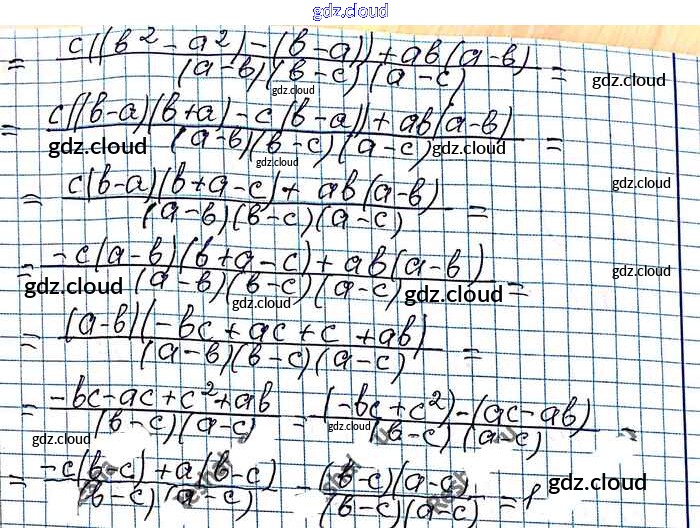 gdz.cloud
= c((b² - a²) - (b - a)) + ab(a - b) / (a - b)(b - c)(a - c) = gdz.cloud
= c((b - a)(b + a) - c(b - a)) + ab(a - b) / (a - b)(b - c)(a - c) =
gdz.cloud gdz.cloud gdz.cloud gdz.cloud
= c(b - a)(b + a - c) + ab(a - b) / (a - b)(b - c)(a - c) = gdz.cloud
= -c(a - b)(b + a - c) + ab(a - b) / (a - b)(b - c)(a - c) = gdz.cloud
gdz.cloud gdz.cloud gdz.cloud
= (a - b)(-bc + ac + c + ab) / (a - b)(b - c)(a - c) =
= -bc - ac + c² + ab / (b - c)(a - c) = (-bc + c²) - (ac - ab) / (b - c)(a - c) =
gdz.cloud
= -c(b - c) + a(b - c) / (b - c)(a - c) = (b - c)(a - c) / (b - c)(a - c) = 1 gdz.cloud